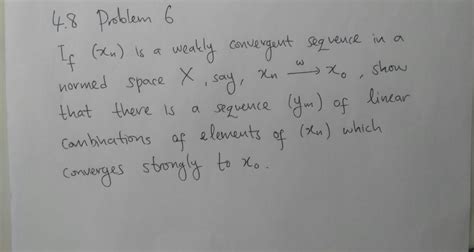 4.8 Problem 6
If (xn) is a weakly convergent sequence in a
normed space X, say, xn —w→ x0, show
that there is a sequence (ym) of linear
combinations of elements of (xn) which
converges strongly to x0.